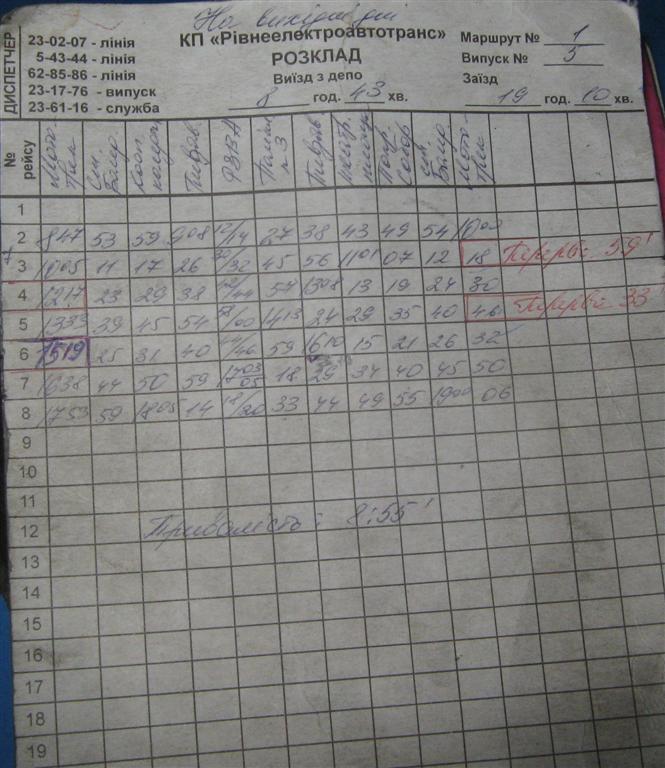 На вихідні дні
ДИСПЕТЧЕР
23-02-07 - лінія
5-43-44 - лінія
62-85-86 - лінія
23-17-76 - випуск
23-61-16 - служба
КП «Рівнеелектроавтотранс»
РОЗКЛАД
Виїзд з депо
8 год. 43 хв.
Маршрут № 1
Випуск № 5
Заїзд
19 год. 10 хв.
№ рейсу
1
2 847 53 59 908 12/14 27 38 43 49 54 1000
3 1005 11 17 26 30/32 45 56 1101 07 12 18 Перерва 59'
4 1217 23 29 38 42/44 57 1308 13 19 24 30
5 1333 39 45 54 58/00 1413 24 29 35 40 46 Перерва 33'
6 1519 25 31 40 44/46 59 1610 15 21 26 32
7 1638 44 50 59 1703/05 18 29 34 40 45 50
8 1753 59 1805 14 18/20 33 44 49 55 1900 06
9
10
11
12 Тривалість: 8:55'
13
14
15
16
17
18
19